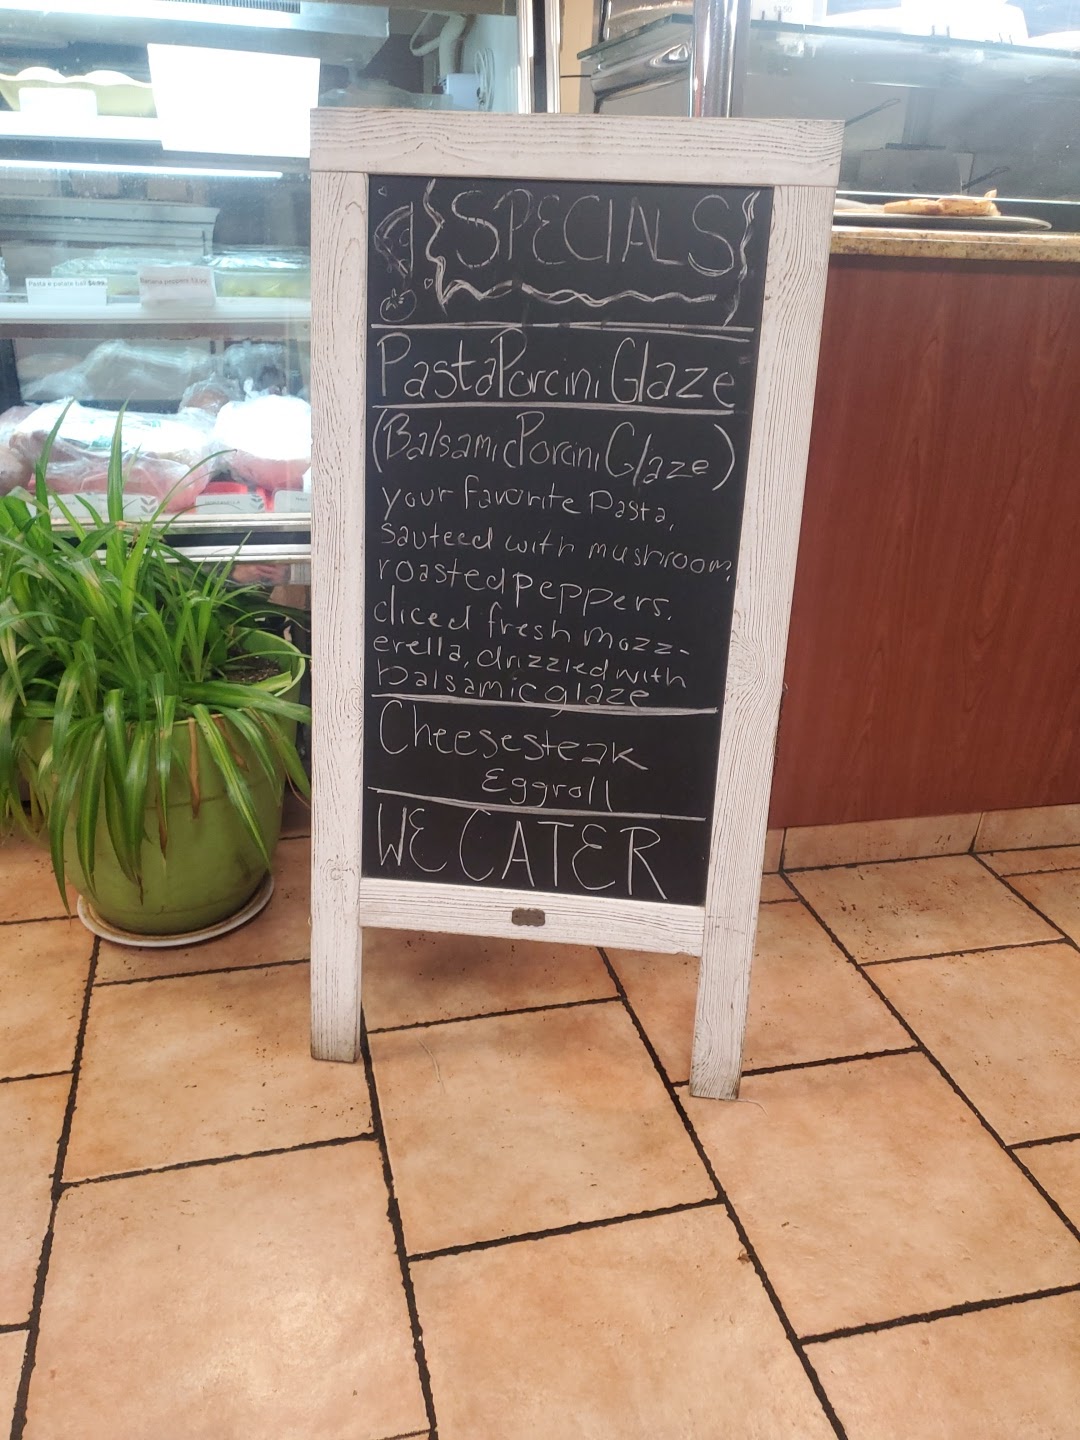 {SPECIALS}
Pasta Porcini Glaze
(Balsamic Porcini Glaze)
your favorite Pasta,
sauteed with mushroom,
roasted peppers.
cliced fresh mozz-
erella, drizzled with
balsamic glaze
Cheesesteak
Eggroll
WE CATER